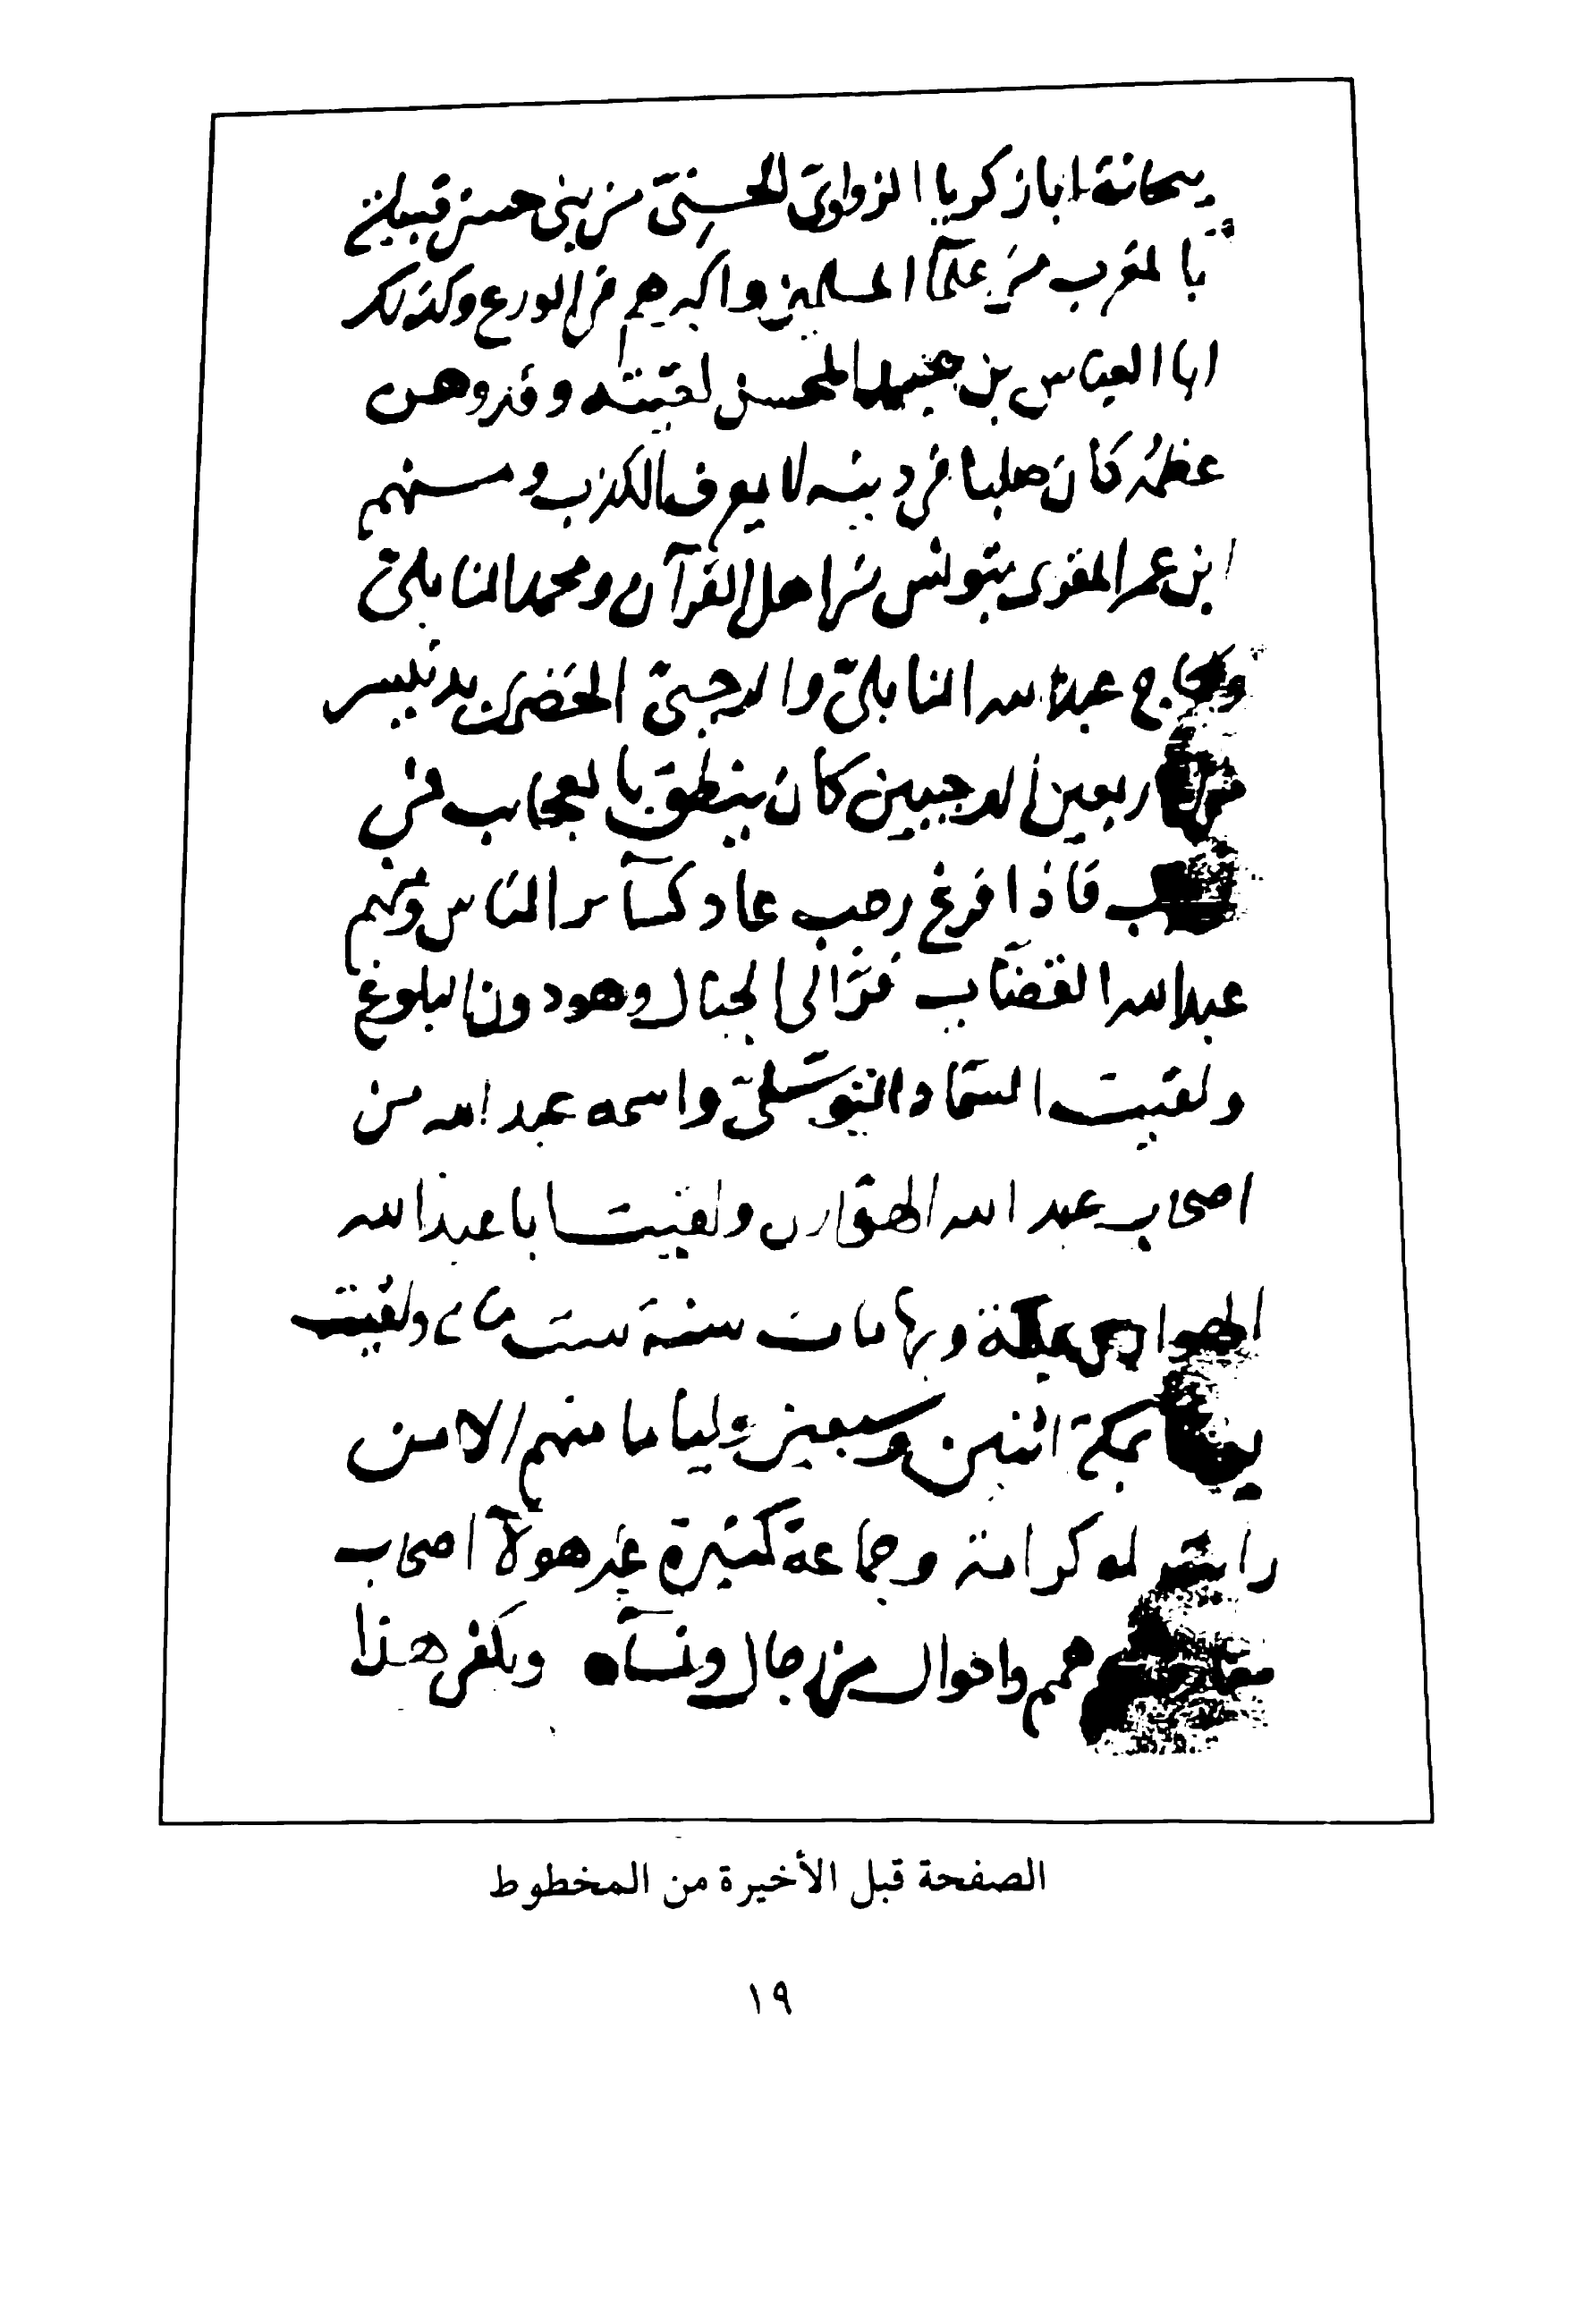 ببجانة ابا زكريا الزواوى الحسنى من بنى حسن قبيلة
بالمغرب من علمآ المسلمين واكبرهم فى الورع وكذلك
ابا العباس بن المحسن لقيته وقد وهن
عظمه كان صلبا فى دينه لا يعرف الكذب ومنهم
ابن عمر المقرى بتونس من اهل القرآن ومحمد النابلى
عبد الله النابلى والرجبى الحضرى بدنيسر
اربعين الرجبيين كان ينطق بالعجاب فى
فاذا فرغ رجب عاد كسآير الناس ومنهم
عبد الله القضاب فر الى الجبال وهو دون البلوغ
ولقيت السماد واسمه عبد الله من
اصحاب عبد الله الهوارى ولقيت ابا عبد الله
بمكة وبها مات سنة ست ولقيت
بمكة اثنين وسبعين وليا ما منهم الا من
رايت له كرامة وجماعة كثيرة غير هولآ اصحاب
همم واحوال من رجال ونسآء ويكفى هذا
الصفحة قبل الأخيرة من المخطوط
١٩